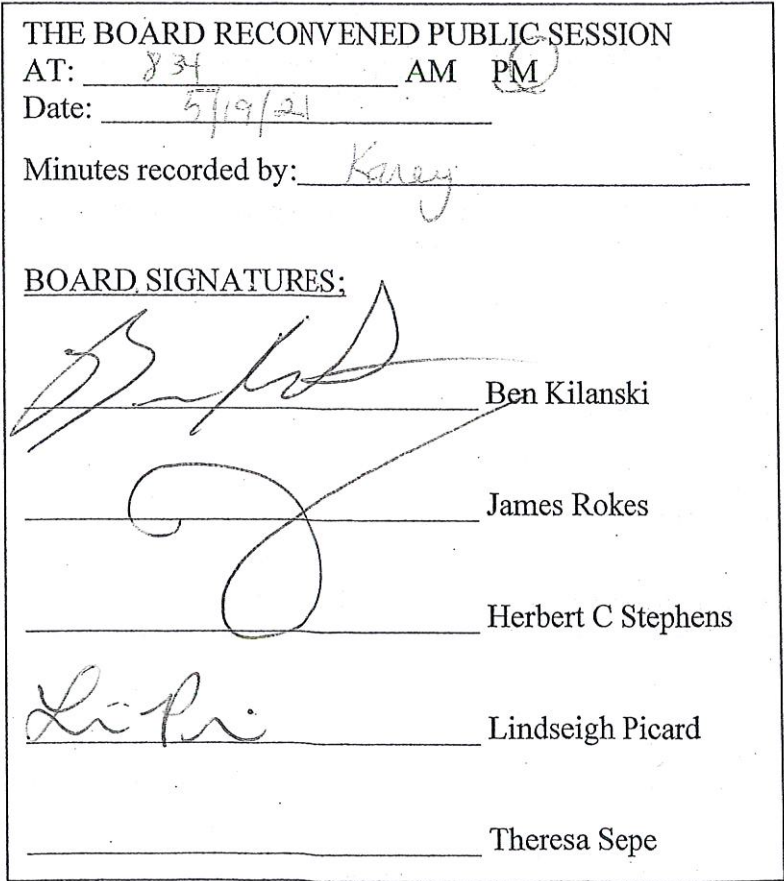 THE BOARD RECONVENED PUBLIC SESSION
AT: 8 34 AM PM
Date: 5/19/21
Minutes recorded by: Karey
BOARD SIGNATURES;
Ben Kilanski
James Rokes
Herbert C Stephens
Lindseigh Picard
Theresa Sepe